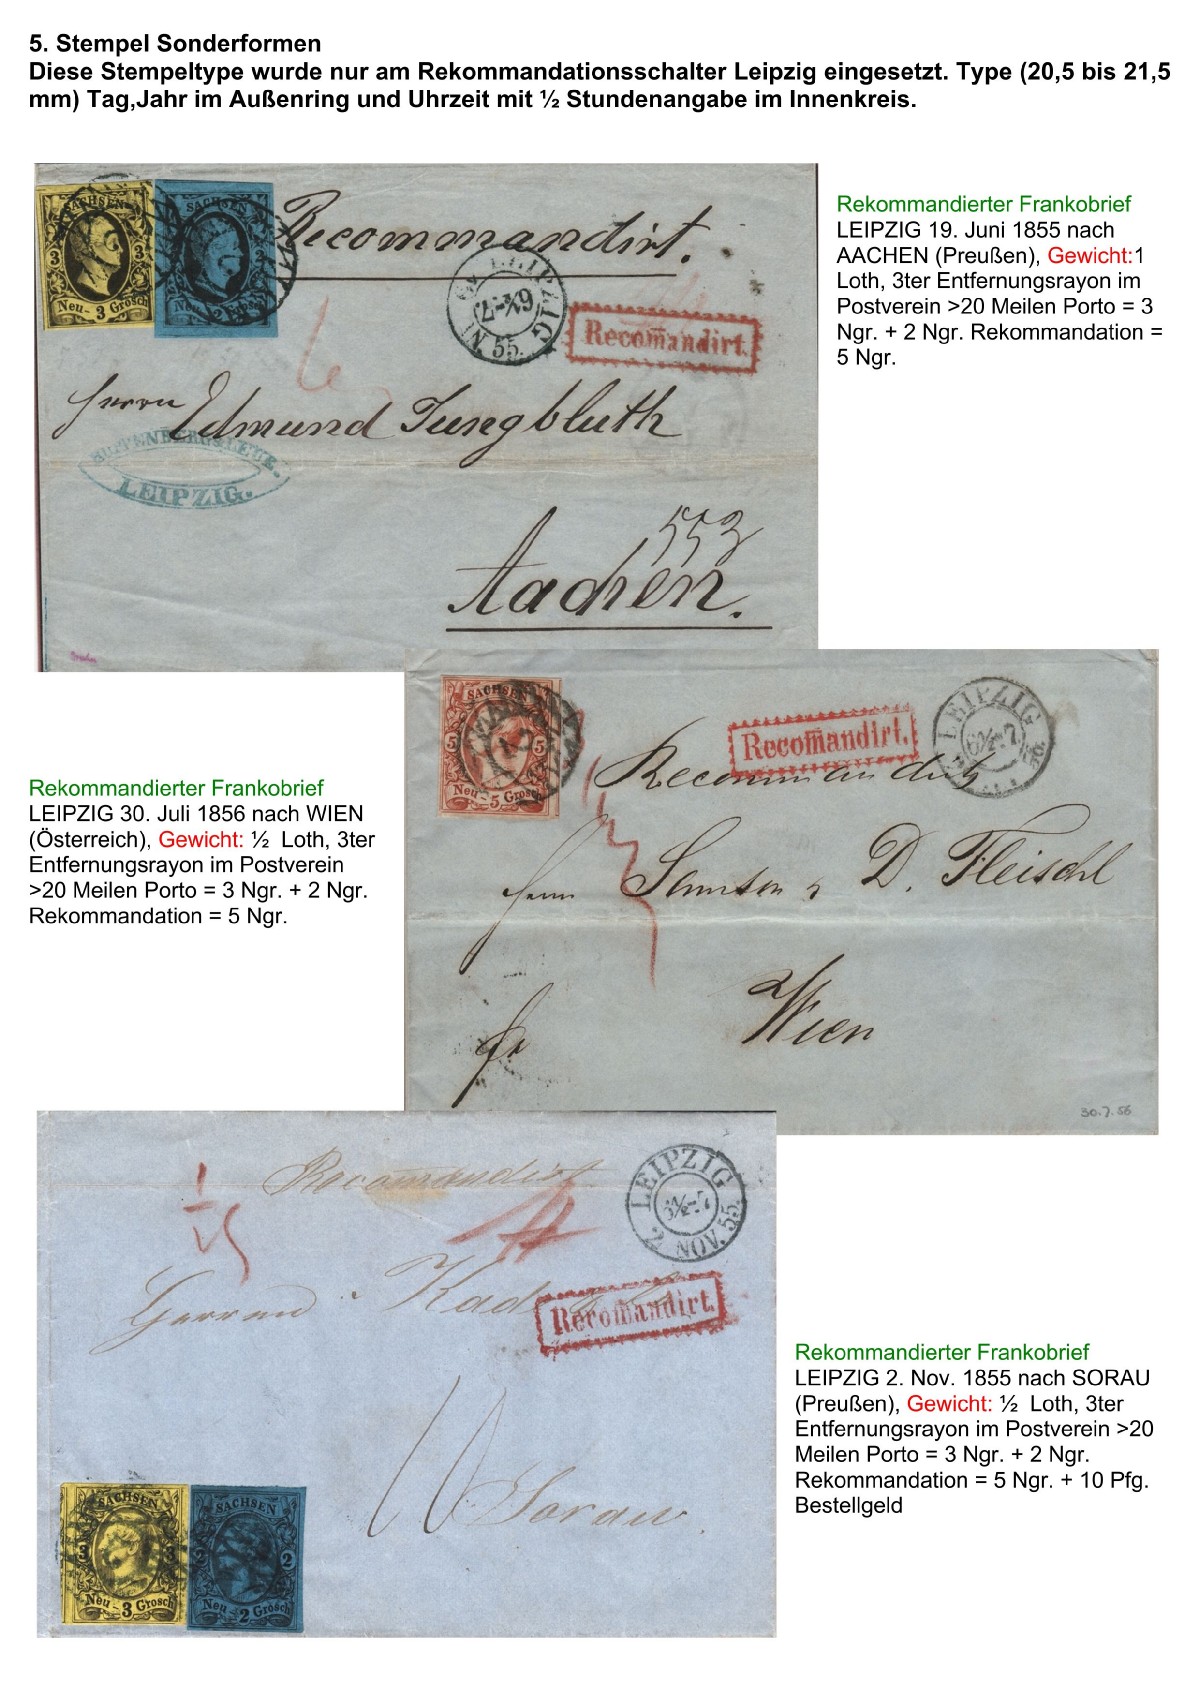 5. Stempel Sonderformen
Diese Stempeltype wurde nur am Rekommandationsschalter Leipzig eingesetzt. Type (20,5 bis 21,5
mm) Tag,Jahr im Außenring und Uhrzeit mit ½ Stundenangabe im Innenkreis.
SACHSEN
3 3
Neu - 3 Grosch
SACHSEN
2
Neu - 2 Grosch
Recommandirt.
LEIPZIG
55.
Recom̄andirt.
Herrn Edmund Jungbluth
LEIPZIG.
553
Aachen.
Rekommandierter Frankobrief
LEIPZIG 19. Juni 1855 nach
AACHEN (Preußen), Gewicht:1
Loth, 3ter Entfernungsrayon im
Postverein >20 Meilen Porto = 3
Ngr. + 2 Ngr. Rekommandation =
5 Ngr.
SACHSEN
5 5
Neu - 5 Grosch
Recom̄andirt.
LEIPZIG
6½-7
56.
Recommandirt
Herrn Samson & D. Fleischl
Wien
fr
30.7.56
Rekommandierter Frankobrief
LEIPZIG 30. Juli 1856 nach WIEN
(Österreich), Gewicht: ½ Loth, 3ter
Entfernungsrayon im Postverein
>20 Meilen Porto = 3 Ngr. + 2 Ngr.
Rekommandation = 5 Ngr.
Recomandirt
LEIPZIG
6½-7
2 NOV. 55.
Herren
Recom̄andirt.
Sorau.
SACHSEN
3 3
Neu - 3 Grosch
SACHSEN
2 2
Neu - 2 Grosch
Rekommandierter Frankobrief
LEIPZIG 2. Nov. 1855 nach SORAU
(Preußen), Gewicht: ½ Loth, 3ter
Entfernungsrayon im Postverein >20
Meilen Porto = 3 Ngr. + 2 Ngr.
Rekommandation = 5 Ngr. + 10 Pfg.
Bestellgeld